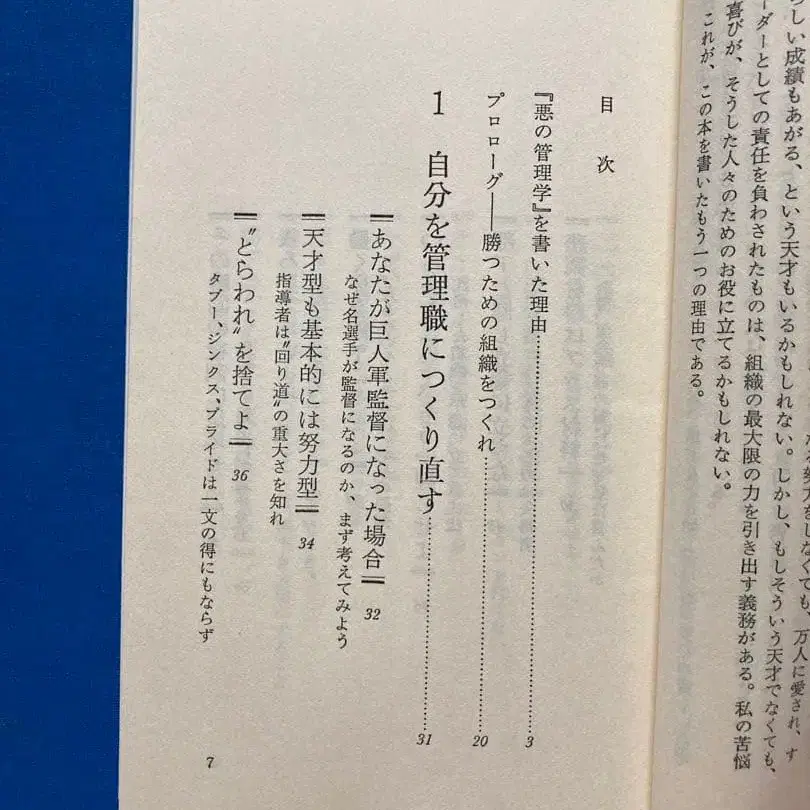 らしい成績もあがる、という天才もいるかもしれない。しかし、もしそういう天才でなくても、
ーダーとしての責任を負わされたものは、組織の最大限の力を引き出す義務がある。私の苦悩
喜びが、そうした人々のためのお役に立てるかもしれない。
これが、この本を書いたもう一つの理由である。
目次
『悪の管理学』を書いた理由……3
プロローグ——勝つための組織をつくれ……20
1 自分を管理職につくり直す……31
あなたが巨人軍監督になった場合 32
なぜ名選手が監督になるのか、まず考えてみよう
天才型も基本的には努力型 34
指導者は〝回り道〟の重大さを知れ
〝とらわれ〟を捨てよ 36
タブー、ジンクス、プライドは一文の得にもならず
7